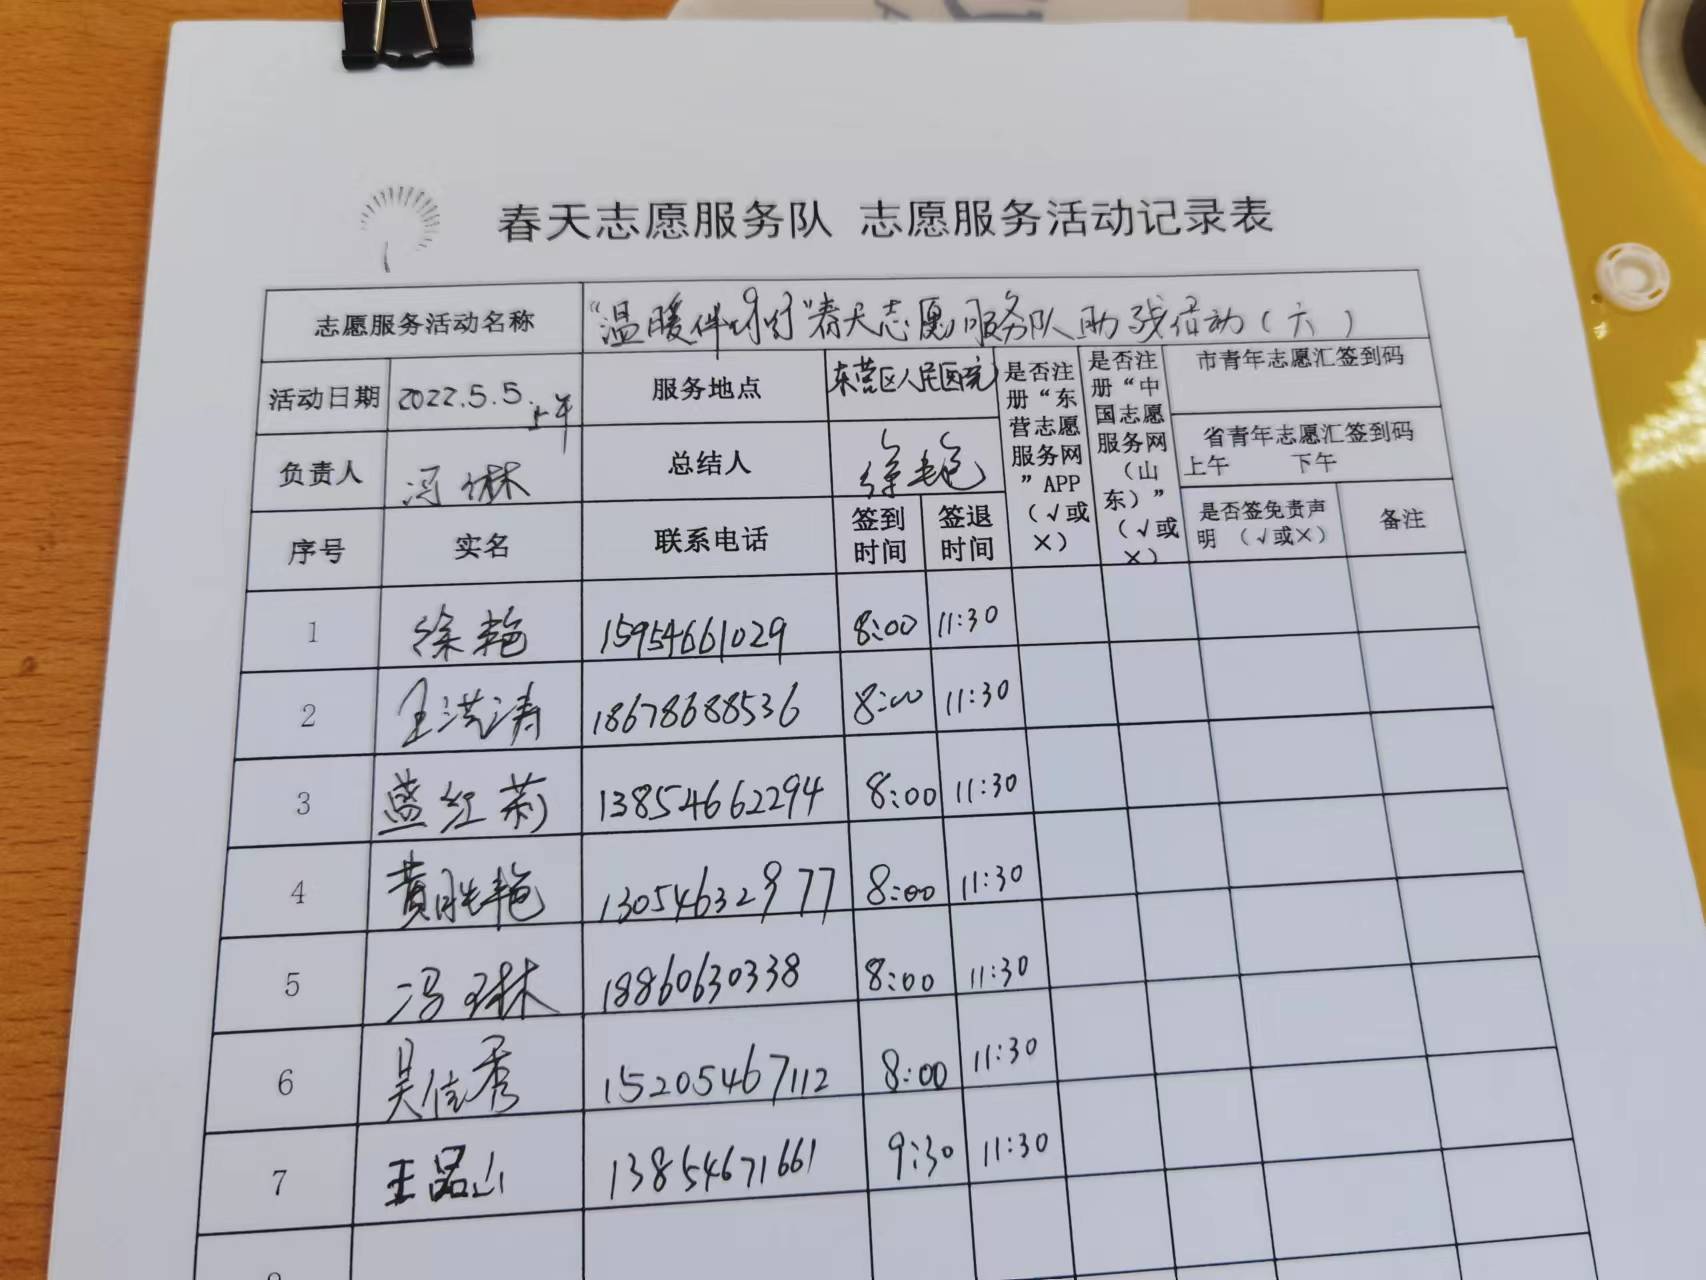 春天志愿服务队 志愿服务活动记录表
志愿服务活动名称 “温暖伴你行”春天志愿服务队助残活动(六)
活动日期 2022.5.5.上午 服务地点 东营区人民医院
是否注册“东营志愿服务网”APP(√或×)
是否注册“中国志愿服务网(山东)”(√或×)
市青年志愿汇签到码
省青年志愿汇签到码
上午 下午
负责人 冯琳 总结人 徐艳
序号 实名 联系电话 签到时间 签退时间 是否签免责声明 (√或×) 备注
1 徐艳 15954661029 8:00 11:30
2 王洪涛 18678688536 8:00 11:30
3 盖红莉 13854662294 8:00 11:30
4 黄胜艳 13054632977 8:00 11:30
5 冯琳 18860630338 8:00 11:30
6 吴信秀 15205467112 8:00 11:30
7 王品山 13854671661 9:30 11:30